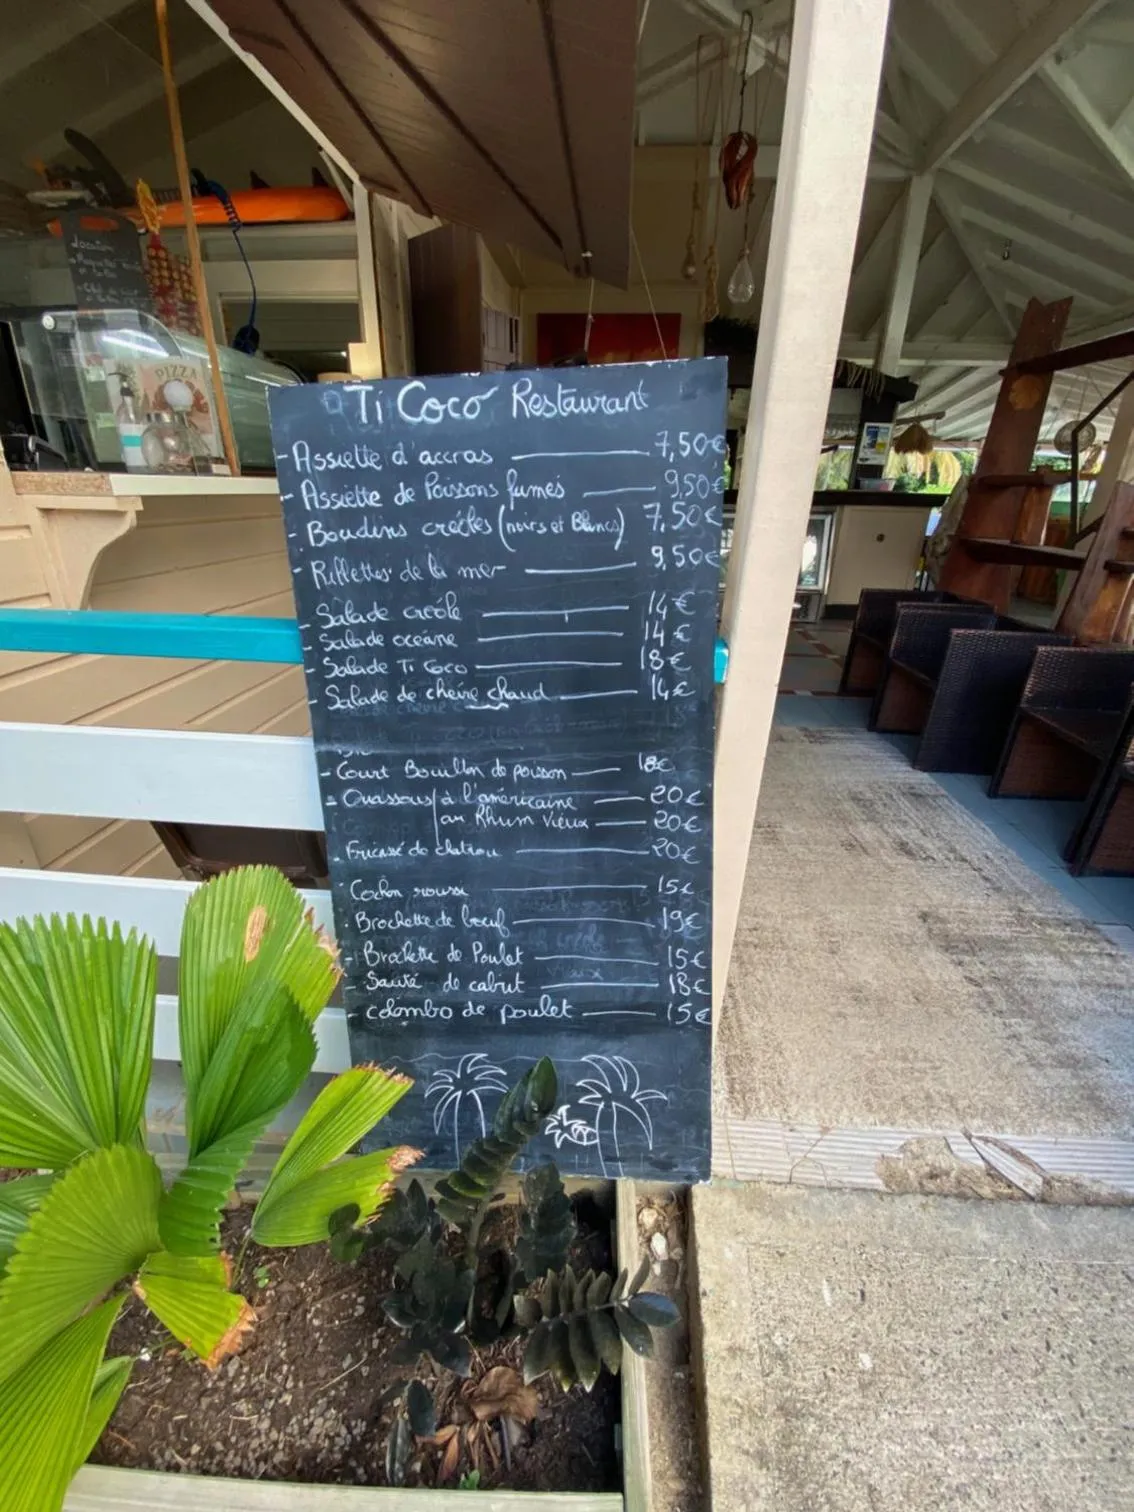 Location
PIZZA
Ti Coco Restaurant
- Assiette d'accras 7,50€
- Assiette de Poissons fumés 9,50€
- Boudins créoles (noirs et Blancs) 7,50€
- Rillettes de la mer 9,50€
- Salade créole 14€
- Salade océane 14€
- Salade Ti Coco 18€
- Salade de chèvre chaud 14€
- Court Bouillon de poisson 18€
- Ouassous à l'américaine 20€
au Rhum Vieux 20€
- Fricassé de chatrou 20€
- Cochon roussi 15€
- Brochette de boeuf 19€
- Brochette de Poulet 15€
- Sauté de cabrit 18€
- colombo de poulet 15€